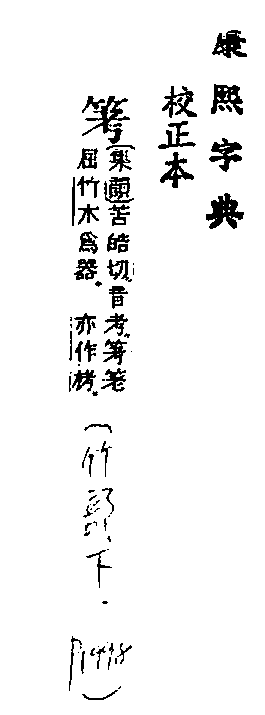 康熙字典
校正本
集韻苦皓切音考
屈竹木爲器。亦作栲。
（竹部下．P1498）